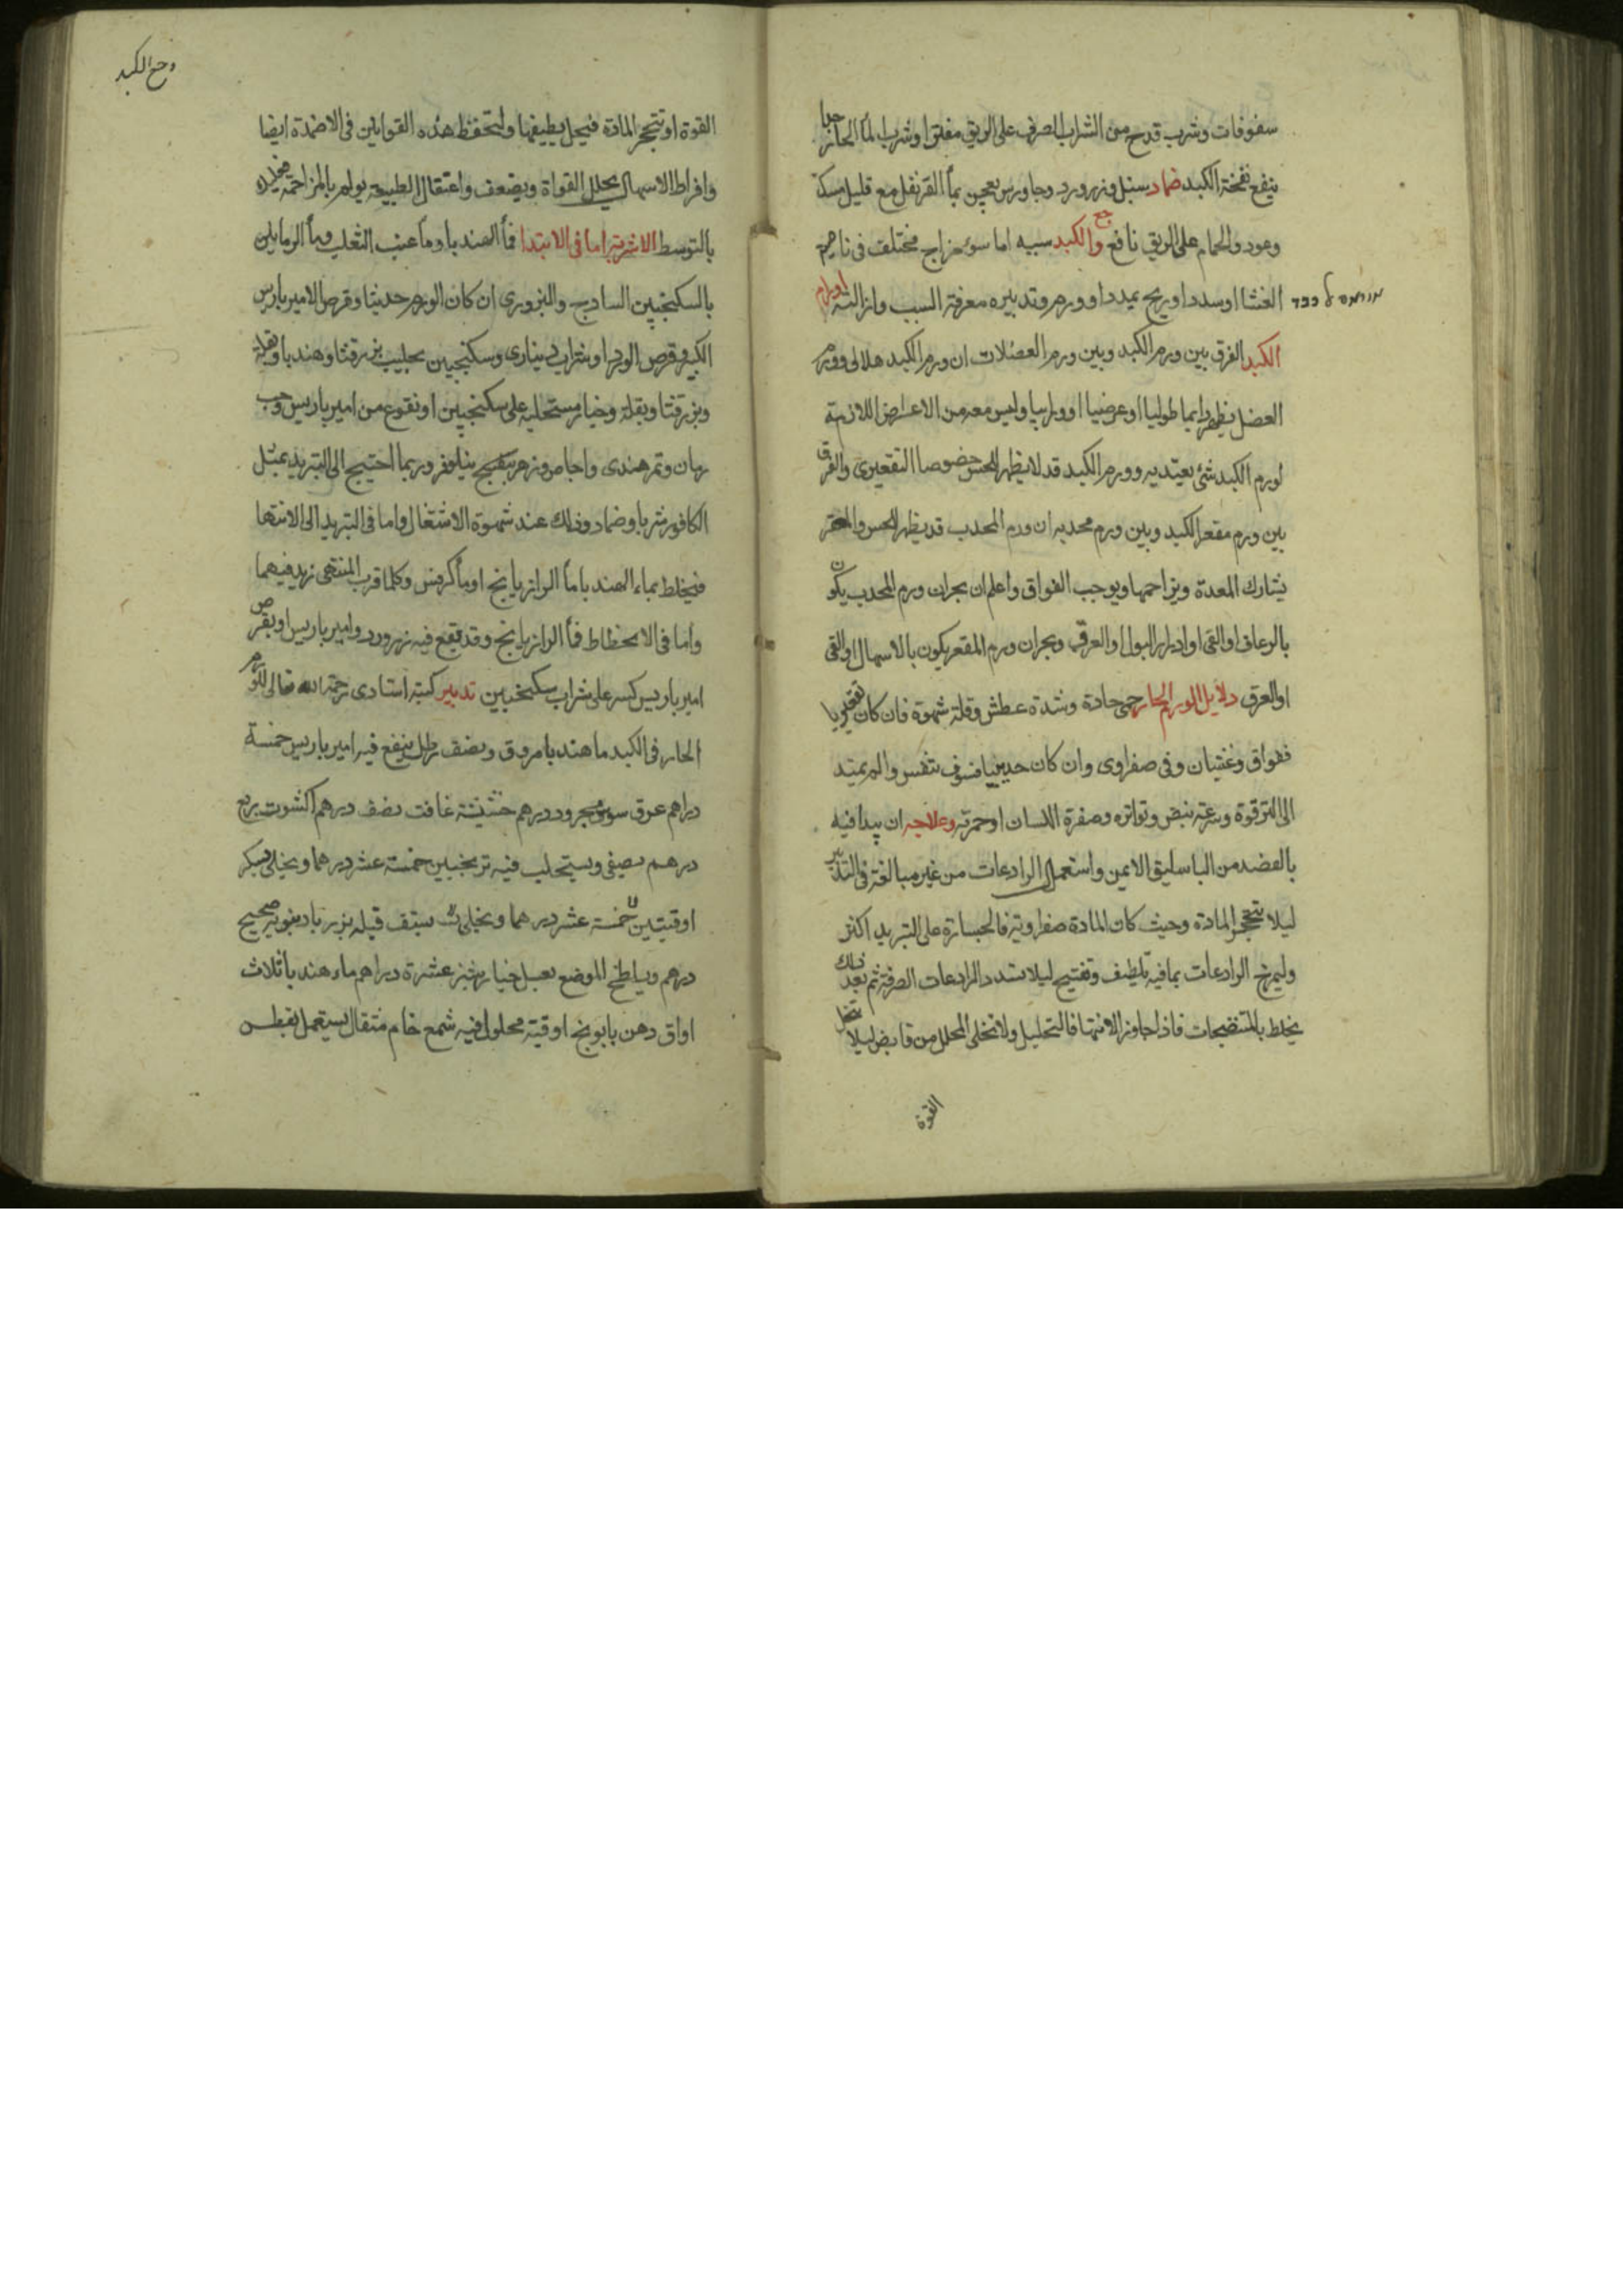 سفوفات وشرب قدح من الشراب الصرف على الريق مفتر او شرب الما الحار جدا
ينفع نفخة الكبد ضماد سنبل وزرورد وجاورس يعجن بمأ القرنفل مع قليل مسك
وعود والحمام على الريق نافع وجع الكبد سببه اما سوء مزاج مختلف فى ناحية
الغشا او سدد او ريح يمدد او ورم وتدبيره معرفة السبب وازالته اورام
الكبد الفرق بين ورم الكبد وبين ورم العضلات ان ورم الكبد هلالى وورم
العضل يظهر دايما طوليا او عرضيا او وارييا وليس معه من الاعراض اللازمة
لورم الكبد شئ يعتد به وورم الكبد قد لا يظهر للحس خصوصا التقعيرى والفرق
بين ورم مقعر الكبد وبين ورم محدبه ان ورم المحدب قد يظهر للحس والمقعر
يشارك المعدة ويزاحمها ويوجب الفواق واعلم ان بحران ورم المحدب يكون
بالرعاف او القى او ادرار البول او العرق وبحران ورم المقعر يكون بالاسهال او القى
او العرق دلايل الورم الحار حمى حادة وشدة عطش وقلة شهوة فان كان تقعيريا
ففواق وغثيان وقى صفراوى وان كان حدبيا فسوء تنفس والم يمتد
الى الترقوة وسرعة نبض وتواتره وصفرة اللسان او حمرته وعلاجه ان يبدا فيه
بالفصد من الباسليق الايمن واستعمال الرادعات من غير مبالغة فى التبريد
ليلا تتحجر المادة وحيث كان المادة صفراوية فالجسارة على التبريد اكثر
وليمزج الرادعات بما فيه تلطيف وتفتيح ليلا تسدد الرادعات الصرفة ثم بعد ذلك
يخلط بالمنضجات فاذا جاوز الانتها فالتحليل ولا تخلى المحلل من قابض ليلا تنحل
القوة
وجع الكبد
القوة او تتحجر المادة فيحل بطيفها ولتحفظ هذه القوانين فى الاضمدة ايضا
وافراط الاسهال يحلل القواة ويضعف واعتقال الطبيعة يولم بالمزاحمة
بالتوسط الاشربة اما فى الابتدا فمأ الهندبا وما عنب الثعلب ومأ الرمانين
بالسكنجبين السادج والبزورى ان كان الورم حديثا وقرص الامير باريس
الكبير وقرص الورد او شراب دينارى وسكنجبين بحليب بزر قثا وهندبا وبقلة
وبزر قثا وبقلة وخيار مستحلبه على سكنجبين او نقوع من امير باريس وحب
رمان وتمر هندى واجاص وزهر بنفسج نيلوفر وربما احتيج الى التبريد بمثل
الكافور شربا وضماد وذلك عند شهوة الاشتغال واما فى التزيد الى الانتها
فيخلط بماء الهندبا مأ الرازيانج او مأ كرفس وكلما قرب المنتهى زيد فيهما
وأما فى الانحطاط فمأ الرازيانج وقد نقع فيه زرورد وامير باريس او بقرص
امير باريس كسر على شراب سكنجبين تدبير كتبه استادى رحمه الله تعالى للورم
الحار فى الكبد ما هندبا مروق ونصف رطل ينقع فيه امير باريس خمسة
دراهم عرق سوس مجرود درهم حشيشة غافت نصف درهم اكشوت ربع
درهم يصفى ويستحلب فيه ترنجبين خمسة عشر درهما ويحلى بسكر
اوقيتين خمسة عشر درهما ويحلى يستف قبله بزر باذنبويه صحيح
درهم ويلطخ الموضع بعسل خيار شنبر عشرة دراهم ماء هندبا ثلاث
اواق دهن بابونج اوقية محلول فيه شمع خام مثقال يستعمل بقطن